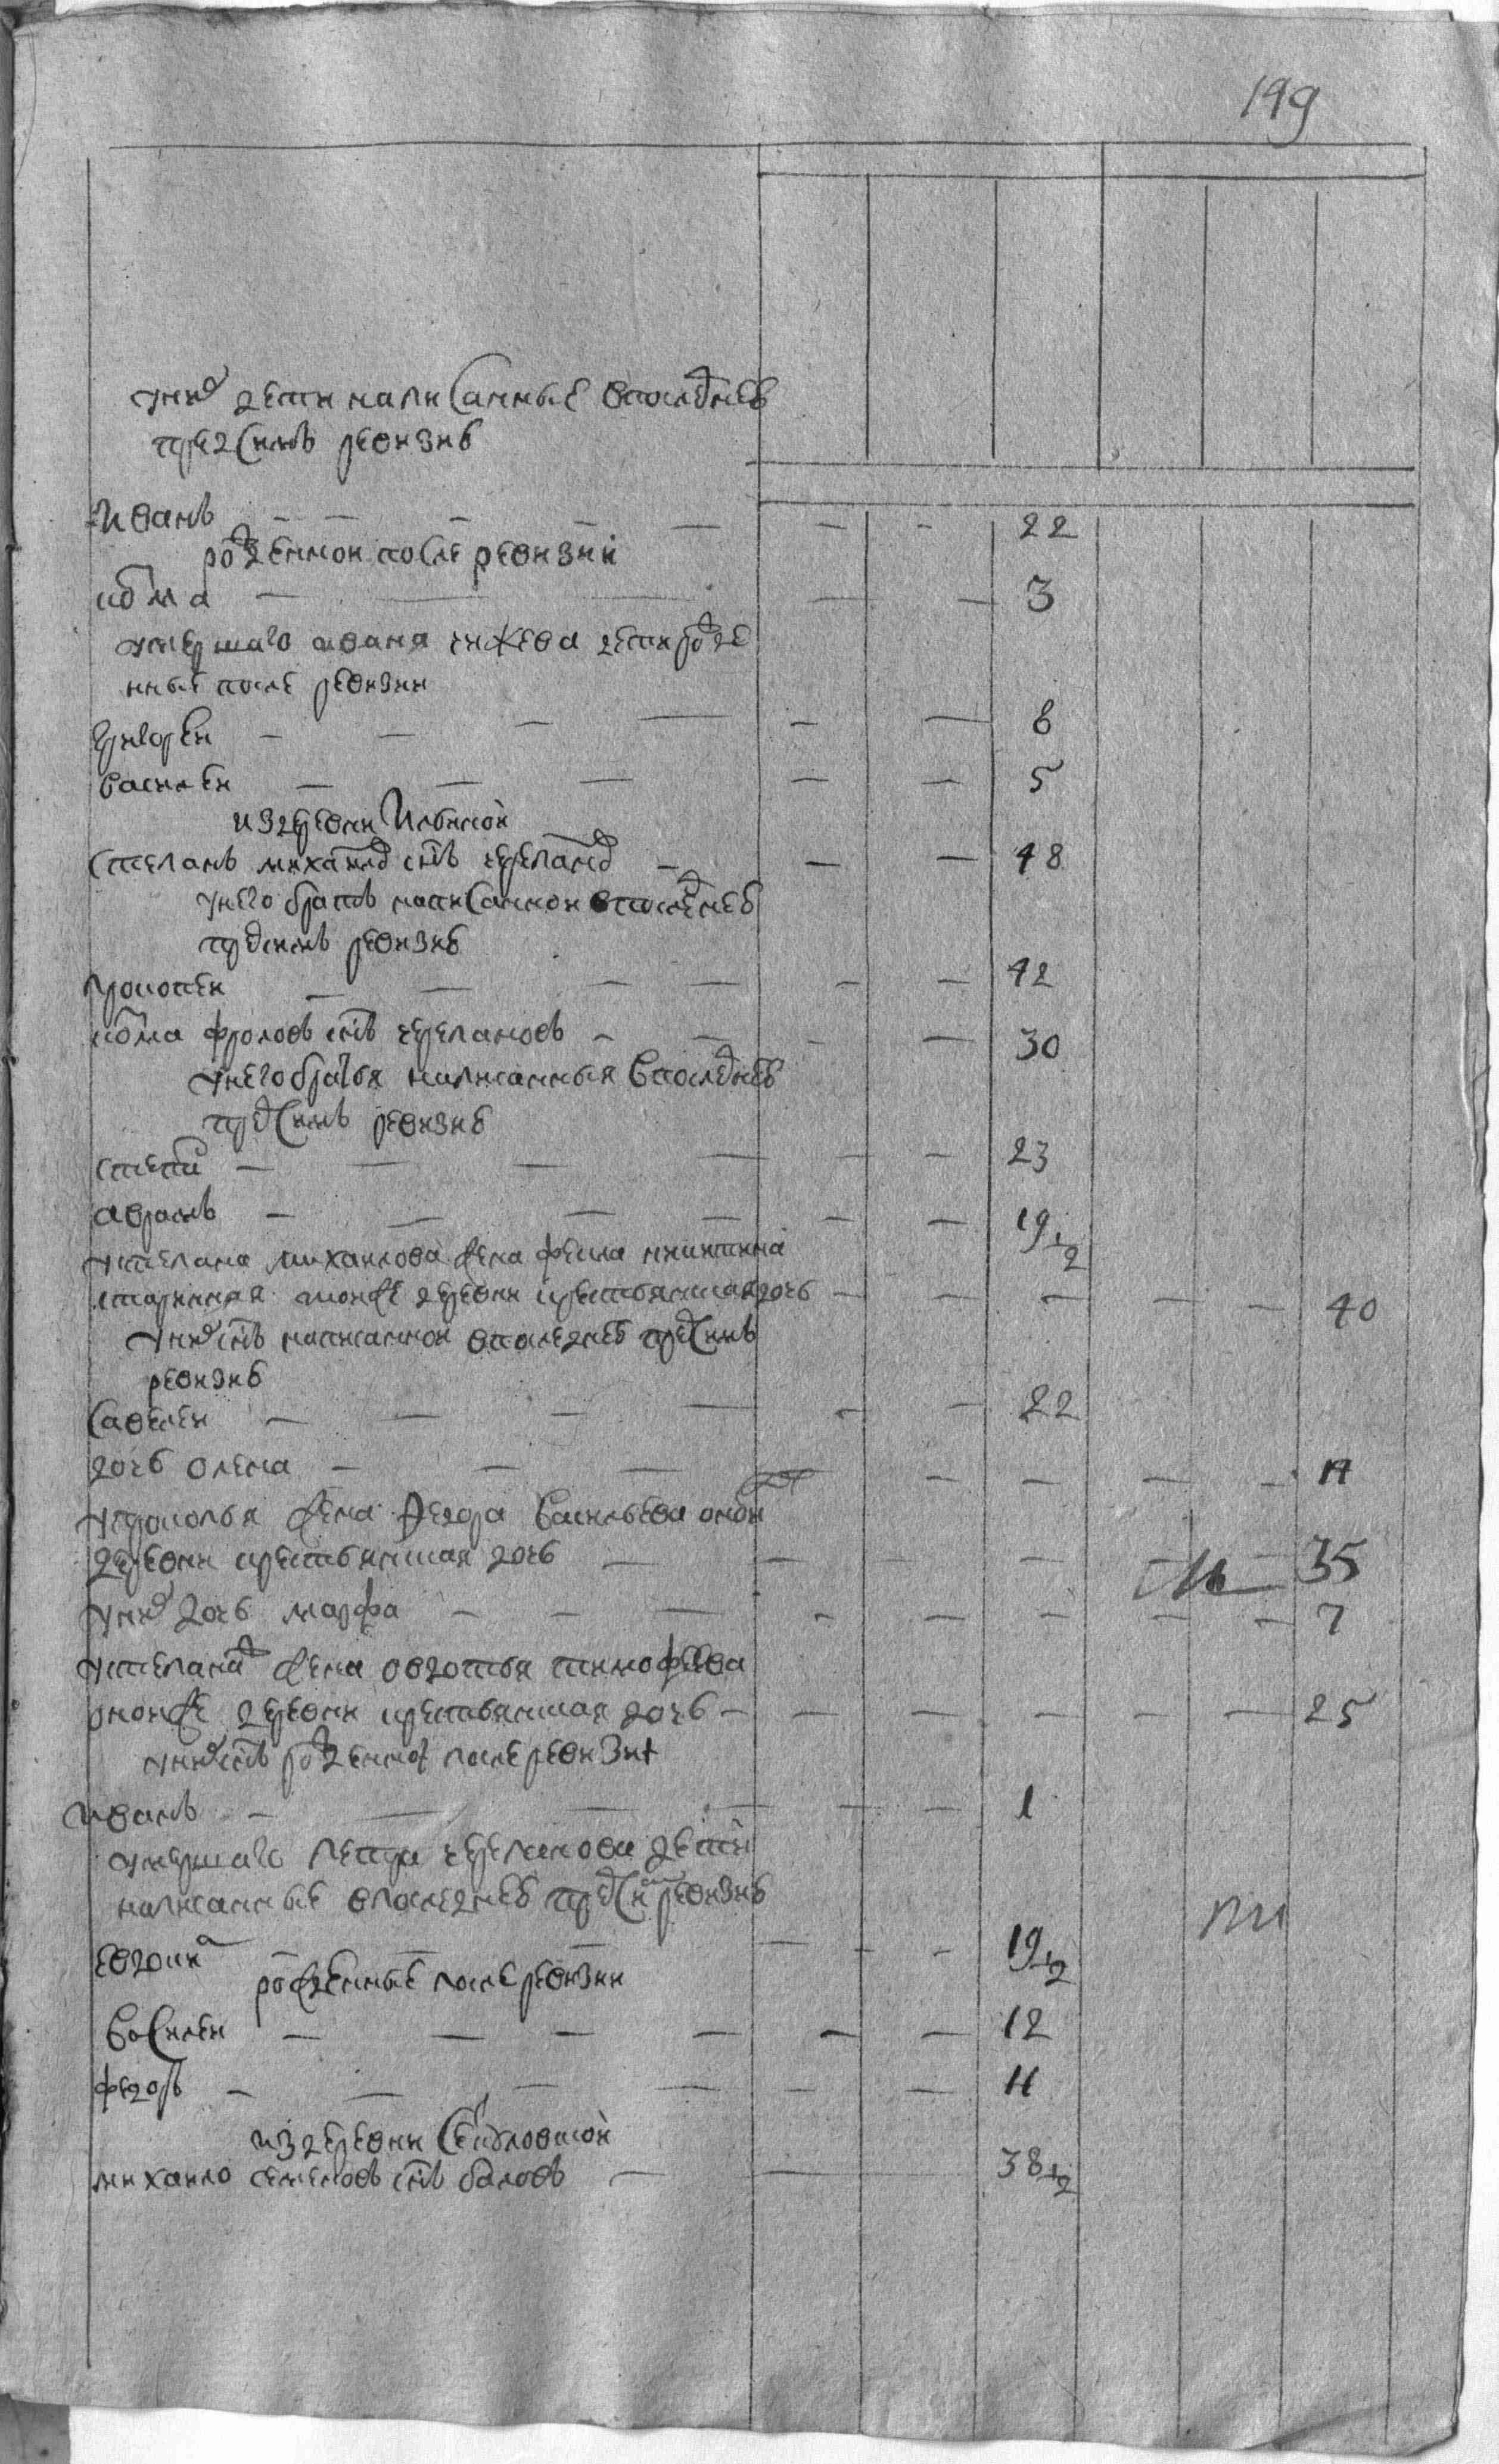 199
у них дети написанные впоследнеѣ
предсимъ ревизиѣ
Иванъ — — — — — — — 22
рожденной после ревизии
козма — — — — 3
умершаго ивана дети рожде
нные после ревизии
Григорей — — — — — — 6
Василей — — — — — 5
из деревни
Степанъ михаиловъ снъ черепановъ — — — 48
унего братъ написанной впоследнеѣ
предсимъ ревизиѣ
Прокопей — — — — — — 42
козма фроловъ снъ черепановъ — — — — 30
унего братья написанныя впоследнеѣ
предсимъ ревизиѣ
степанъ — — — — — — 23
аврамъ — — — — — — 19½
устепана михаилова жена фекла никитина
старинная тоиже деревни крестьянская дочь — — — — — 40
у них снъ написанной впоследнеѣ предсимъ
ревизиѣ
Савелей — — — — — — 22
дочь олена — — — — — — —
упрокопья жена Федора Васильева оной
деревни крестьянская дочь — — — — — 35
у них дочь марфа — — — — — — — — 7
устепана жена овдотья тимофеева
оноиже деревни крестьянская дочь — — — — — — 25
у них снъ рожденной после ревизии
Иванъ — — — — — — 1
умершаго Петра черепанова дети
написанные впоследнеѣ предсимъ ревизиѣ
евдоким — — — — — — 19½
рожденные после ревизии
Василей — — — — — — 12
федоръ — — — — — — 11
из деревни
михаило семеновъ снъ — — 38½